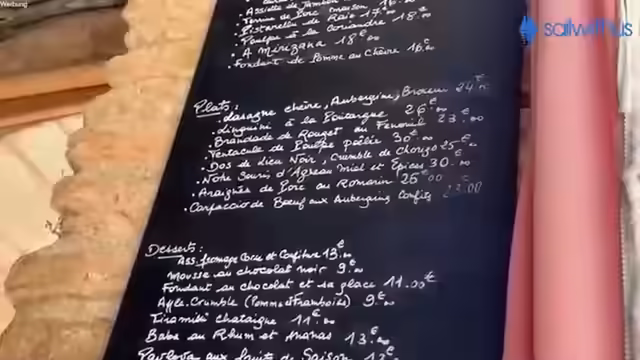 Werbung
sailwithus
Assiette de Jambon 16.
Terrine de Porc maison
Pistarellu de Raie 17.
Poulpe à la coriandre 18.€
A Mirizana 18€.00
Fondant de Pomme au Chèvre 16.€00
Plats:
Lasagne chèvre, Aubergine, Brocciu 24.€
Linguini à la Poutargue 26€.00
Brandade de Rouget au Fenouil 23.€00
Tentacule de Poulpe poêlée 30€.00
Dos de Lieu Noir, Crumble de Chorizo 25€.00
Notre Souris d'Agneau Miel et Épices 30€.00
Araignée de Porc au Romarin 25€.00
Carpaccio de Bœuf aux Aubergines Confites 23.00
Desserts:
Ass. fromage Corse et Confiture 13.€00
Mousse au chocolat noir 9.€00
Fondant au chocolat et sa glace 11.00€
Apple.Crumble (Pomme et Framboise) 9.€00
Tiramisu chataigne 11€.00
Baba au Rhum et Ananas 13.€00
Pavlova aux fruits de Saison 12€